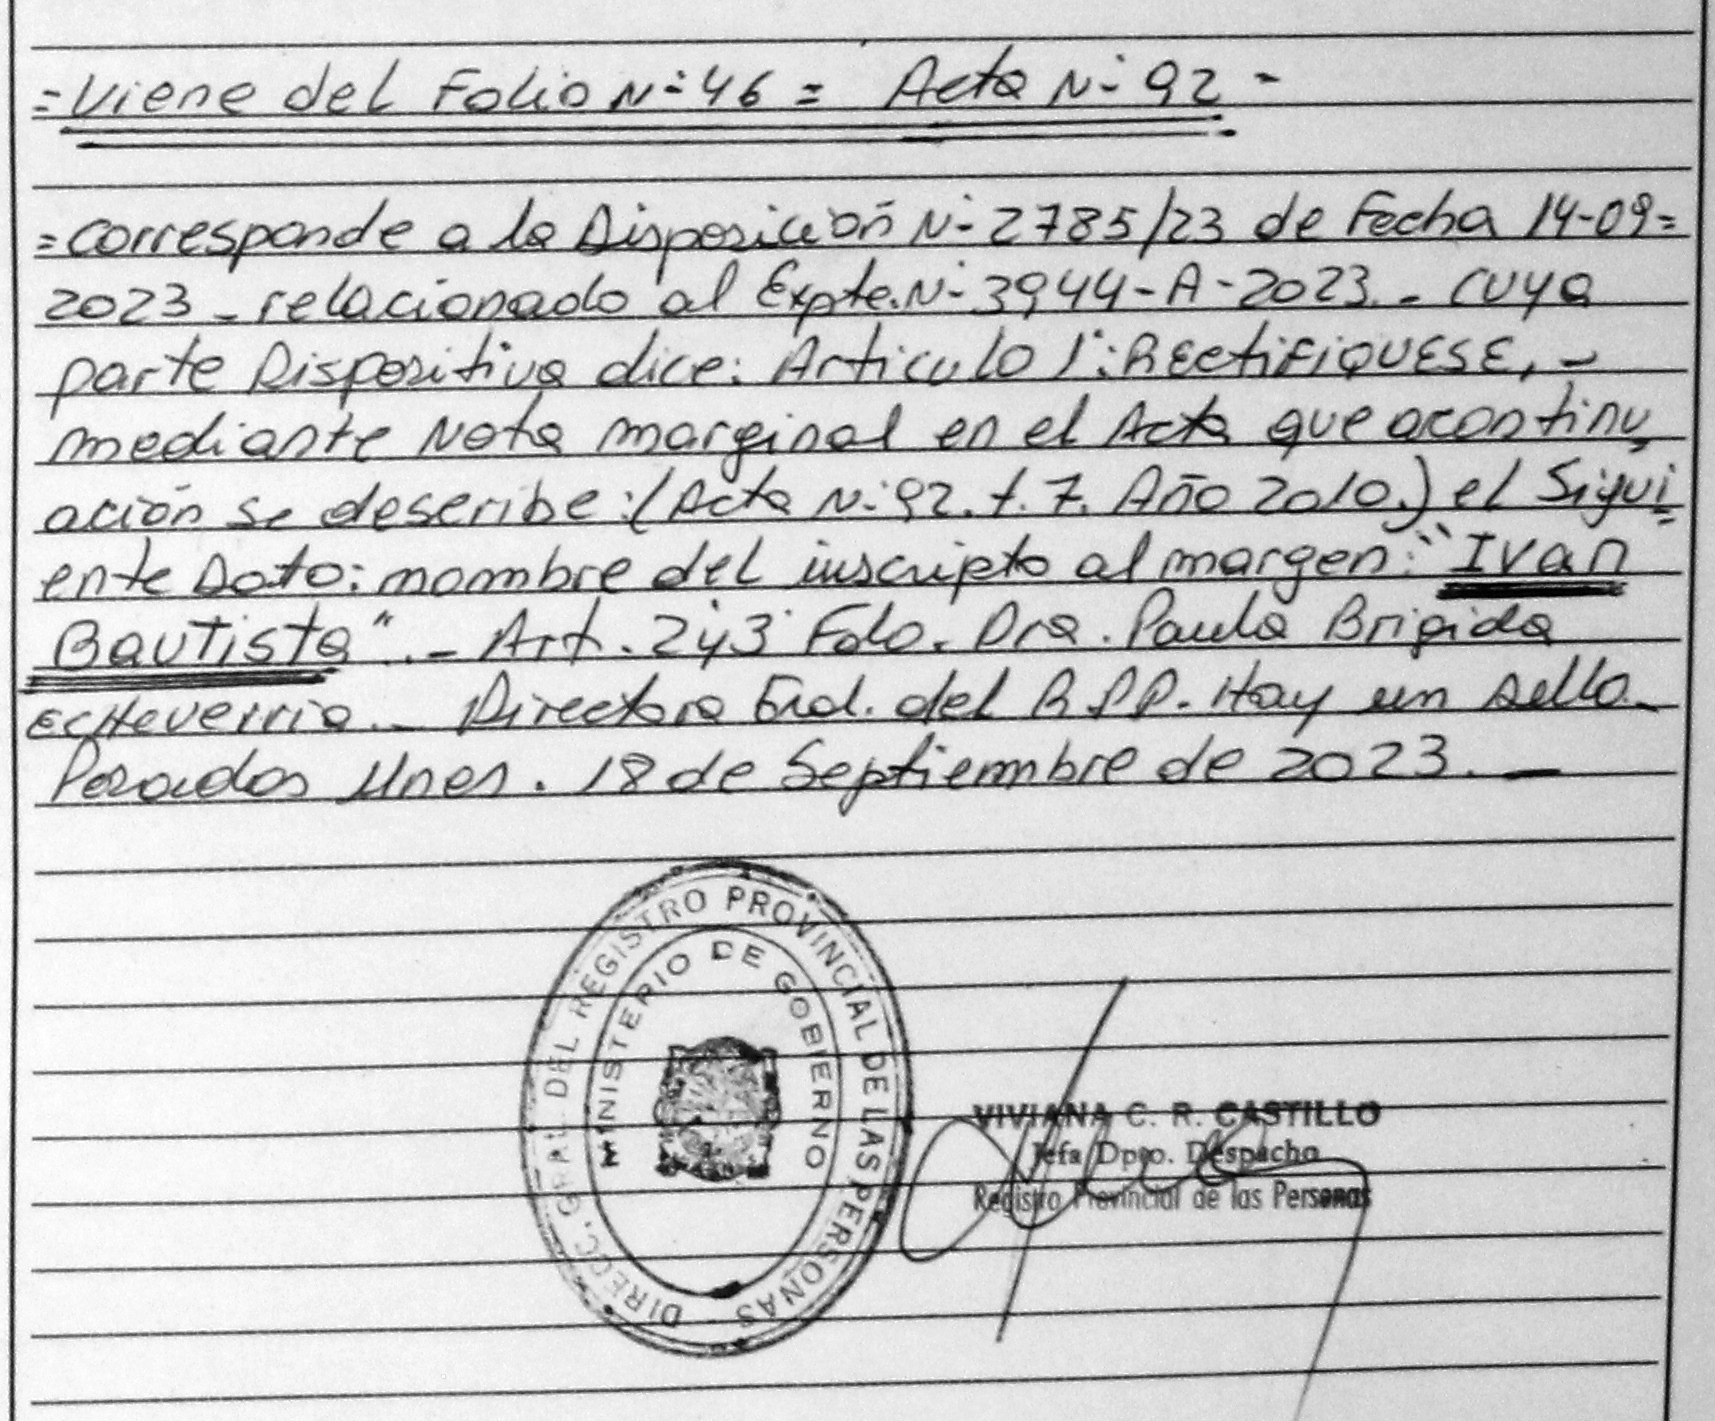 =Viene del Folio N-46= Acta N- 92-
=Corresponde a la Disposición N-2785/23 de Fecha 14-09=
2023_relacionado al Expte.N-3944-A-2023._ cuya
parte Dispositiva dice: Articulo 1°: RECtiFiQUESE,_
mediante Nota marginal en el Acta que acontinu
ación se describe:(Acta N:92.t.7. Año 2010.) el Sigui
ente Dato: nombre del inscripto al margen: "Ivan
Bautista"._ Art. 2y3 Fdo. Dra. Paula Brigida
Echeverria._ Directora Gral. del R.P.P. Hay un sello._
Posadas Mnes. 18 de Septiembre de 2023._
DIRECC. GRAL. DEL REGISTRO PROVINCIAL DE LAS PERSONAS
MINISTERIO DE GOBIERNO
VIVIANA C. R. CASTILLO
Jefa Dpto. Despacho
Registro Provincial de las Personas